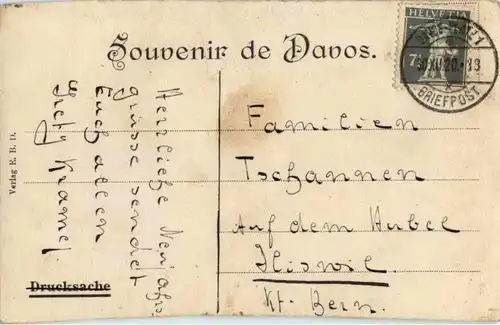 Souvenir de Davos.
HELVETIA
7½
30.XII.20.-
BRIEFPOST
Herzliche Neujahrs
grüsse sendet
Euch allen
Verlag E. B. D.
Drucksache
Familien
Tschannen
Auf dem Hubel
Iliswil
Kt. Bern.